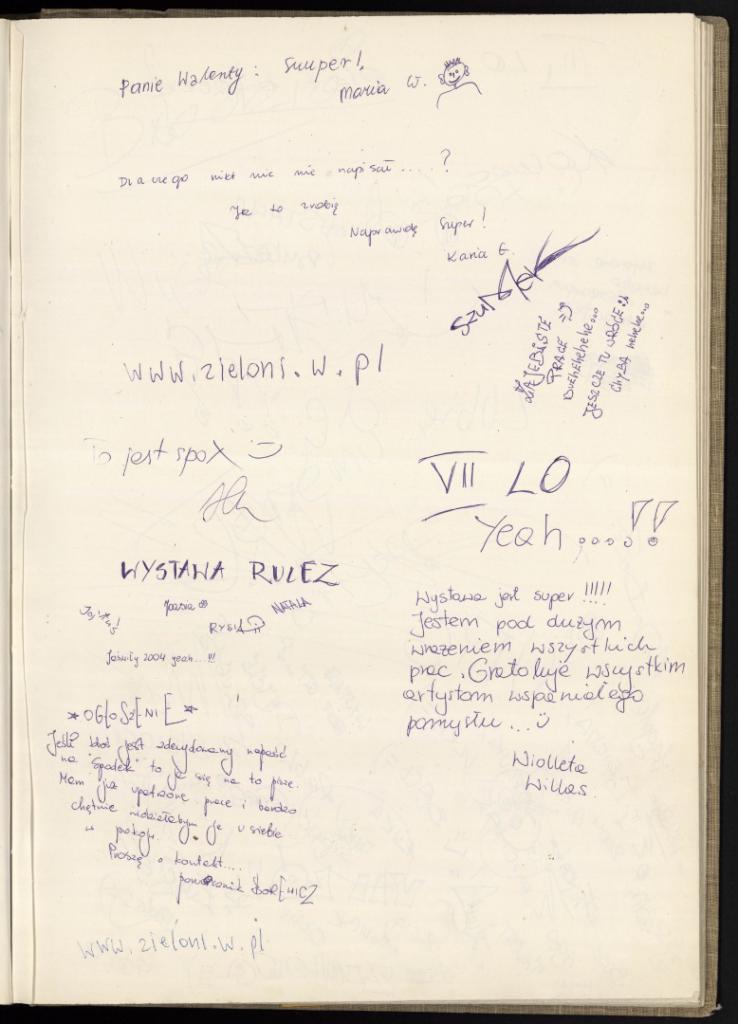 Panie Walenty: Suuper!
Maria W.
Dlaczego nikt nic nie napisał....?
Ja to zrobię
Naprawdę super!
Kasia G.
www.zieloni.w.pl
ZAJEBISTE
PRACE =)
BUEHEHEHEHEHE...
JESZCZE TU WRÓCĘ :)
CHYBA HEHEHE...
To jest spoX =)
VII LO
Yeah....!!
WYSTAWA RULEZ
Joasia
RYSIA
NATALA
2004 yeah...!!!
Wystawa jest super !!!!!
Jestem pod dużym
wrażeniem wszystkich
prac. Gratoluję wszystkim
artystom wspaniałego
pomysłu...
Wiolleta
Willas
* OGŁOSZENIE *
Jeśli ktoś jest zdecydowany napaść
na "Spodek" to ja się na to piszę.
Mam już upatrzone prace i bardzo
chętnie widziałabym je u siebie
w pokoju.
Proszę o kontakt....
porucznik BOREWICZ
www.zieloni.w.pl